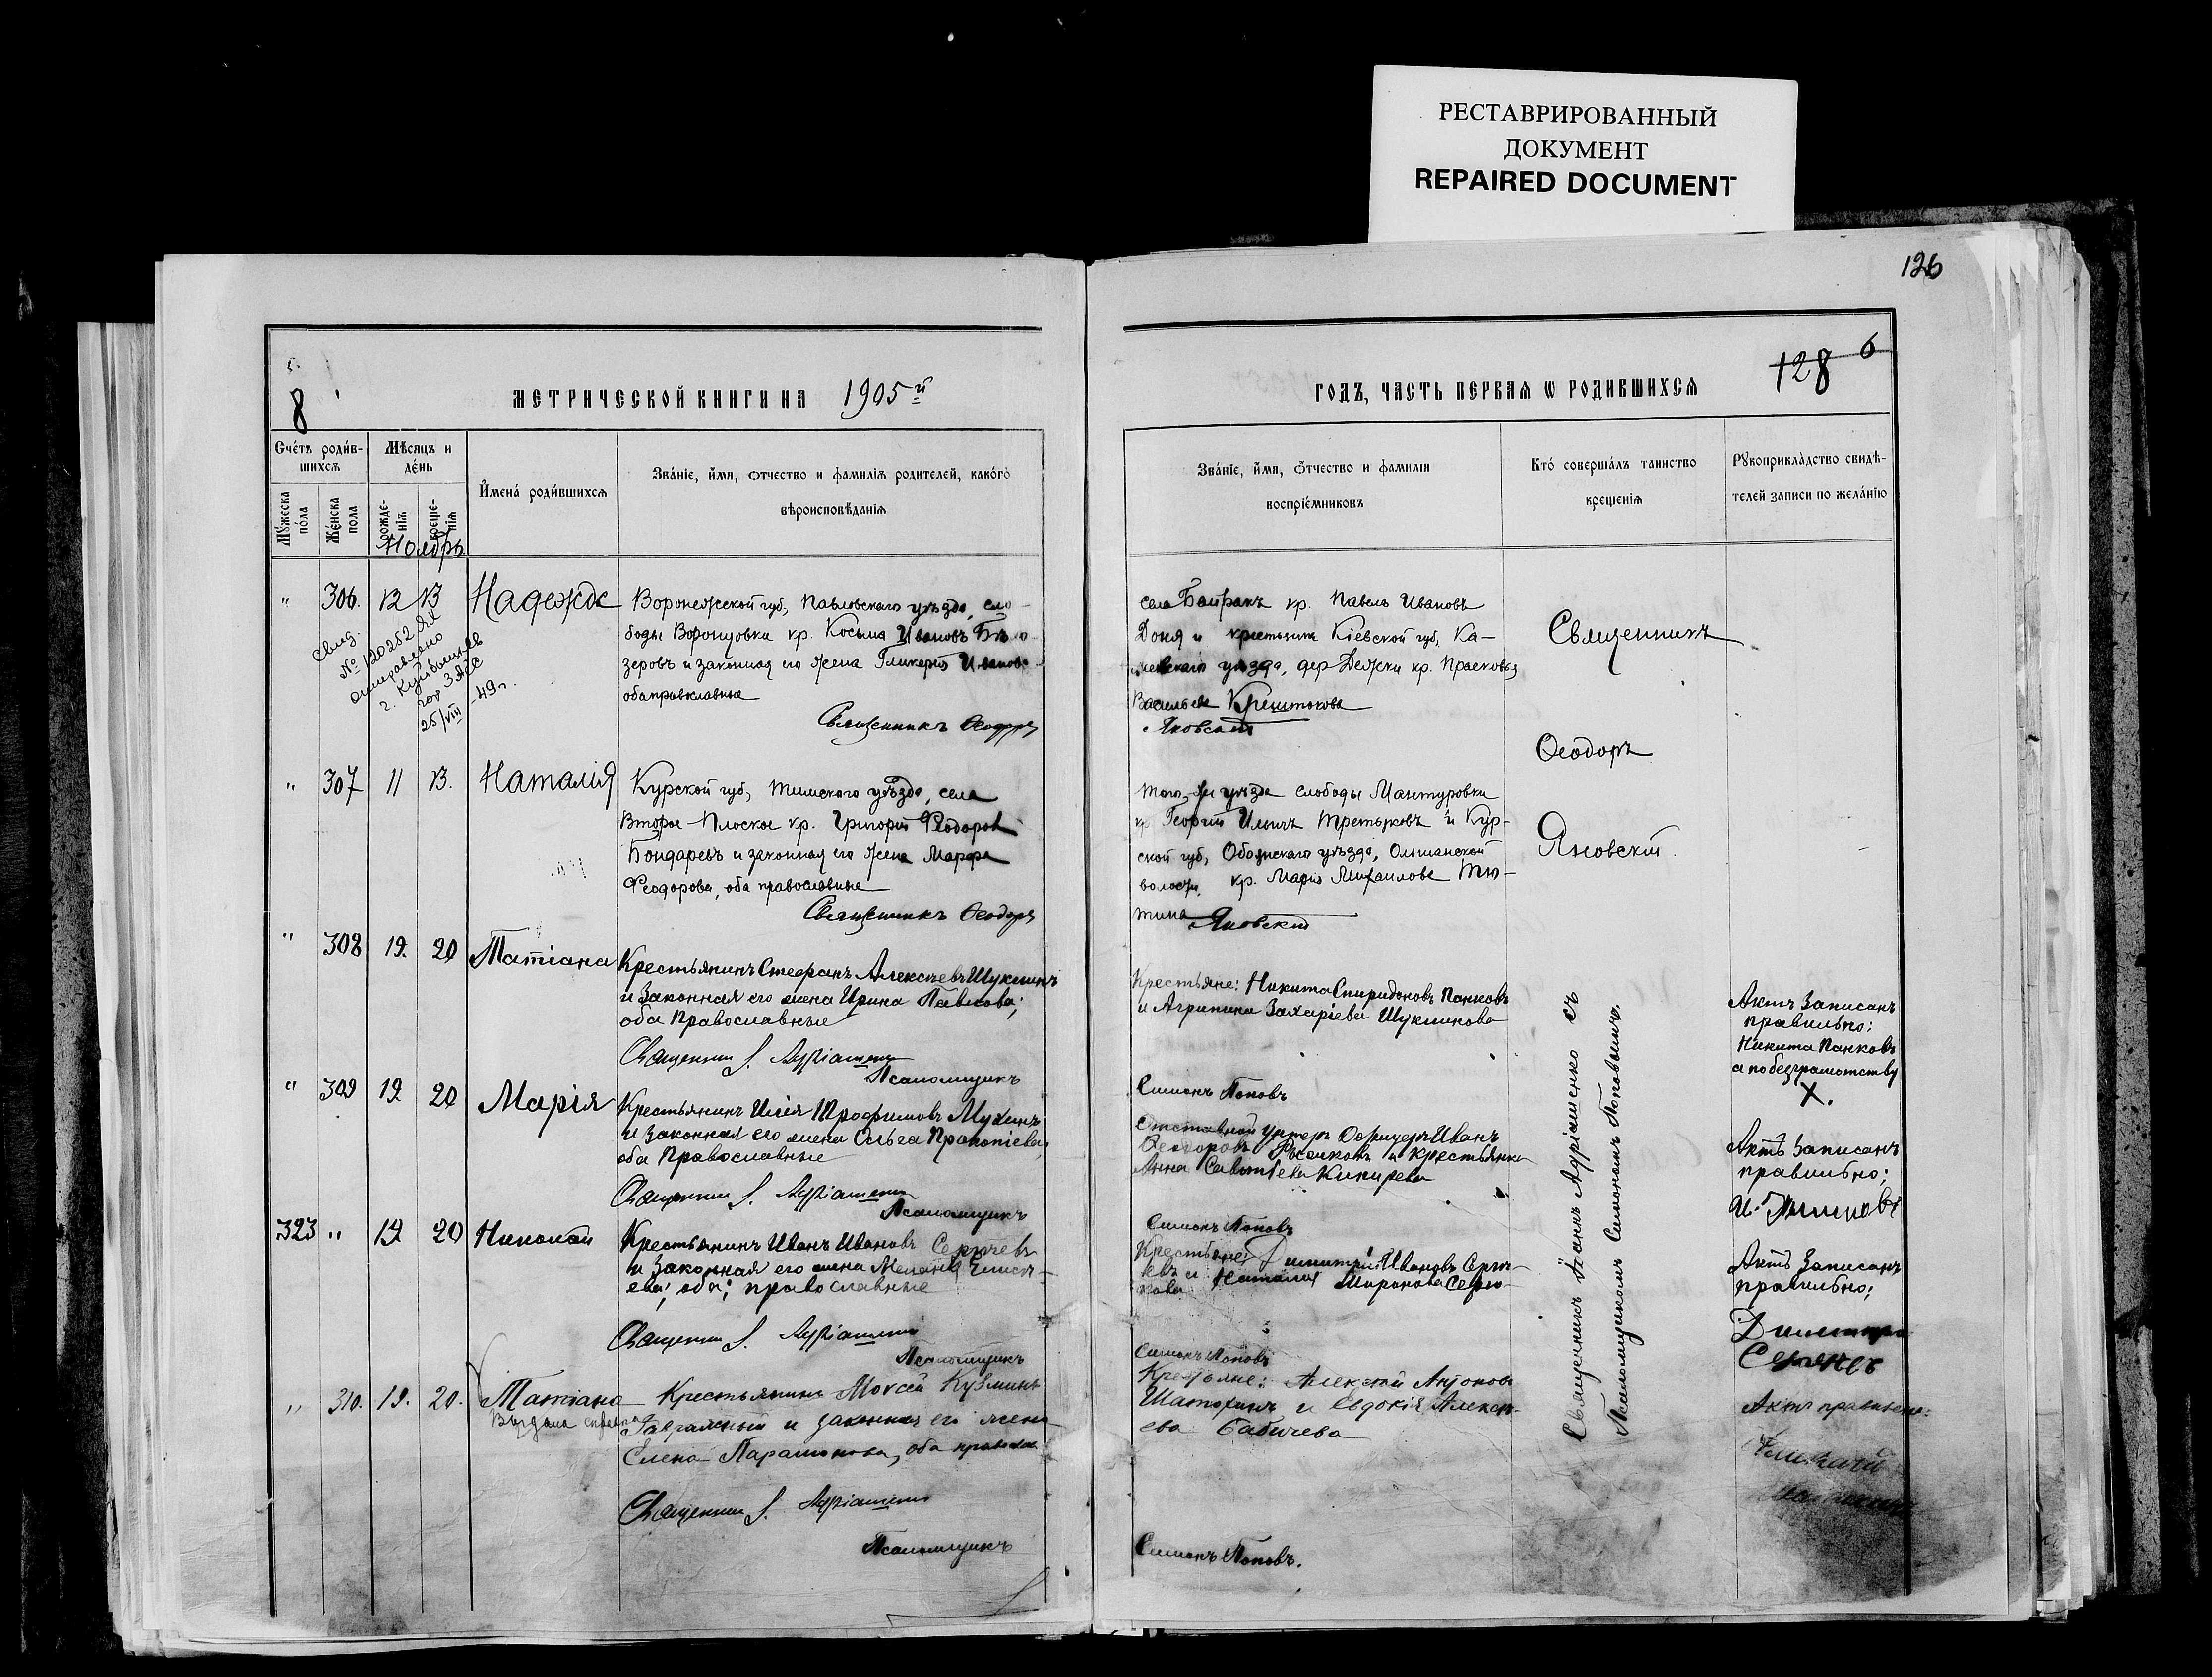 РЕСТАВРИРОВАННЫЙ
ДОКУМЕНТ
REPAIRED DOCUMENT
126
8
МЕТРИЧЕСКОЙ КНИГИ НА 1905й
ГОДЪ, ЧАСТЬ ПЕРВАЯ Ѡ РОДИВШИХСЯ
128 6
Счетъ родив-
шихся
Мужеска
пола
Женска
пола
Мѣсяцъ и
день
рожде-
нія
креще-
нія
Ноябрь
Имена родившихся
Званіе, имя, отчество и фамилія родителей, какого
вѣроисповѣданія
Званіе, имя, отчество и фамилія
воспріемниковъ
Кто совершалъ таинство
крещенія
Рукоприкладство свидѣ-
телей записи по желанію
" 306. 12 13 Надежда
Свид.
№ 120282 ЯХ
отправлено
г. Куйбышевъ
гор ЗАГС
25/VIII -49 г.
Воронежской губ, Павловскаго уѣзда, сло-
боды Воронцовки кр. Косьма Ивановъ Бѣло-
зеровъ и законная его жена Гликерія Иванова
оба православные
Священникъ Ѳеодоръ
села Байракъ кр. Павелъ Ивановъ
Доня и крестьянка Кіевской губ, Ка-
невскаго уѣзда, дер. кр. Прасковья
Васильева
Яновскій
Священникъ
Ѳеодоръ
Яновскій.
" 307 11 13. Наталія
Курской губ, Тимскаго уѣзда, села
Второе-Плоское кр. Григорій Ѳеодоровъ
Бондаревъ и законная его жена Марфа
Ѳеодорова, оба православные
Священникъ Ѳеодоръ
того-же уѣзда слободы Мантуровки
кр. Георгій Ильичъ Третьяковъ и Кур-
ской губ, Обоянскаго уѣзда, Ольшанской
волости, кр. Марія Михаилова Тю-
тина
Яновскій
" 308 19. 20 Татіана
Крестьянинъ Стефанъ Алексѣевъ Шуклинъ
и законная его жена Ирина Павлова;
оба Православные
Священникъ І. Адріашенко
Псаломщикъ
Крестьяне: Никита Спиридоновъ Панковъ
и Агрипина Захаріева Шуклинова
Симонъ Поповъ
Актъ Записанъ
правильно:
Никита Панковъ
а по безграмотству
X.
" 309 19 20 Марія
Крестьянинъ Илія Трофимовъ Мухинъ
и законная его жена Ольга Прокопіева,
оба Православные
Священникъ І. Адріашенко
Псаломщикъ
Отставной унтеръ Офицеръ Иванъ
Ѳеодоровъ и крестьянка
Анна Савитіева
Симонъ Поповъ
Актъ Записанъ
правильно;
323 " 19 20 Николай
Крестьянинъ Иванъ Ивановъ Сергѣевъ
и Законная его жена Меланія Елисѣ-
ева; оба; православные
Священникъ І. Адріашенко
Псаломщикъ
Крестьяне: Димитрій Ивановъ
и Наталія Миронова
Симонъ Поповъ
Актъ Записанъ
правильно;
Димитрій
" 310. 19. 20. Татіана
Выдана справка
Крестьянинъ Моисей Кузминъ
и законная его жена
Елена Парамонова, оба правосл.
Священникъ І. Адріашенко
Псаломщикъ
Крестьяне: Алексѣй Антоновъ
Шатохинъ и Евдокія Алексѣ-
ева Бабичева
Симонъ Поповъ.
Актъ правильно:
Алексѣй
Священникъ Іоаннъ Адріашенко съ
Псаломщикомъ Симономъ Поповымъ.